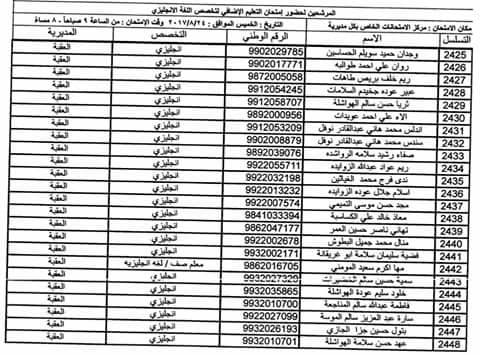 المرشحين لحضور إمتحان التعليم الإضافي لتخصص اللغة الانجليزي
مكان الإمتحان : مركز الامتحانات الخاص بكل مديرية التاريخ : الخميس الموافق : ٢٠١٧/٨/٢٤ وقت الإمتحان : من الساعة ٩ صباحاً - ٨ مساءً
التسلسل الاسم الرقم الوطني التخصص المديرية
2425 وجدان حميد سويلم الحساسين 9902029785 انجليزي العقبة
2426 روان علي احمد طوالبه 9902017771 انجليزي العقبة
2427 ريم خلف بريص طاهات 9872005058 انجليزي العقبة
2428 عبير عوده جخيدم السلامات 9912054245 انجليزي العقبة
2429 ثريا حسن سالم الهواشلة 9912058707 انجليزي العقبة
2430 الاء علي احمد عويدات 9892000956 انجليزي العقبة
2431 اندلس محمد هاني عبدالقادر نوفل 9912053209 انجليزي العقبة
2432 سندس محمد هاني عبدالقادر نوفل 9902008879 انجليزي العقبة
2433 صفاء رشيد سلامه الرواشده 9892039076 انجليزي العقبة
2434 ريم عواد عبدالله الزوايده 9922055711 انجليزي العقبة
2435 ندى فرح محمد الغياثين 9922032238 انجليزي العقبة
2436 اسلام جلال عوده الزوايده 9922013232 انجليزي العقبة
2437 مجد حسن موسى التميمي 9922007574 انجليزي العقبة
2438 معاذ خالد علي الكساسبة 9841033394 انجليزي العقبة
2439 تهاني ناصر حسين العمر 9862047177 انجليزي العقبة
2440 منال محمد جميل البطوش 9922002678 انجليزي العقبة
2441 فضية سليمان سلامة ابو عريقانة 9932002171 انجليزي العقبة
2442 مها اكرم سعيد المومني 9862016705 معلم صف / لغه انجليزيه العقبة
2443 سمية حسين سالم 9932027329 انجليزي العقبة
2444 خلود سليم عودة الهواشلة 9932035865 انجليزي العقبة
2445 فاطمة عبدالله سالم المناجعة 9932010700 انجليزي العقبة
2446 سارة عبد العزيز سالم الموسة 9922027099 انجليزي العقبة
2447 بتول حسين جزا الجازي 9932026193 انجليزي العقبة
2448 عهد حسن سلامة الهواشلة 9932010701 انجليزي العقبة